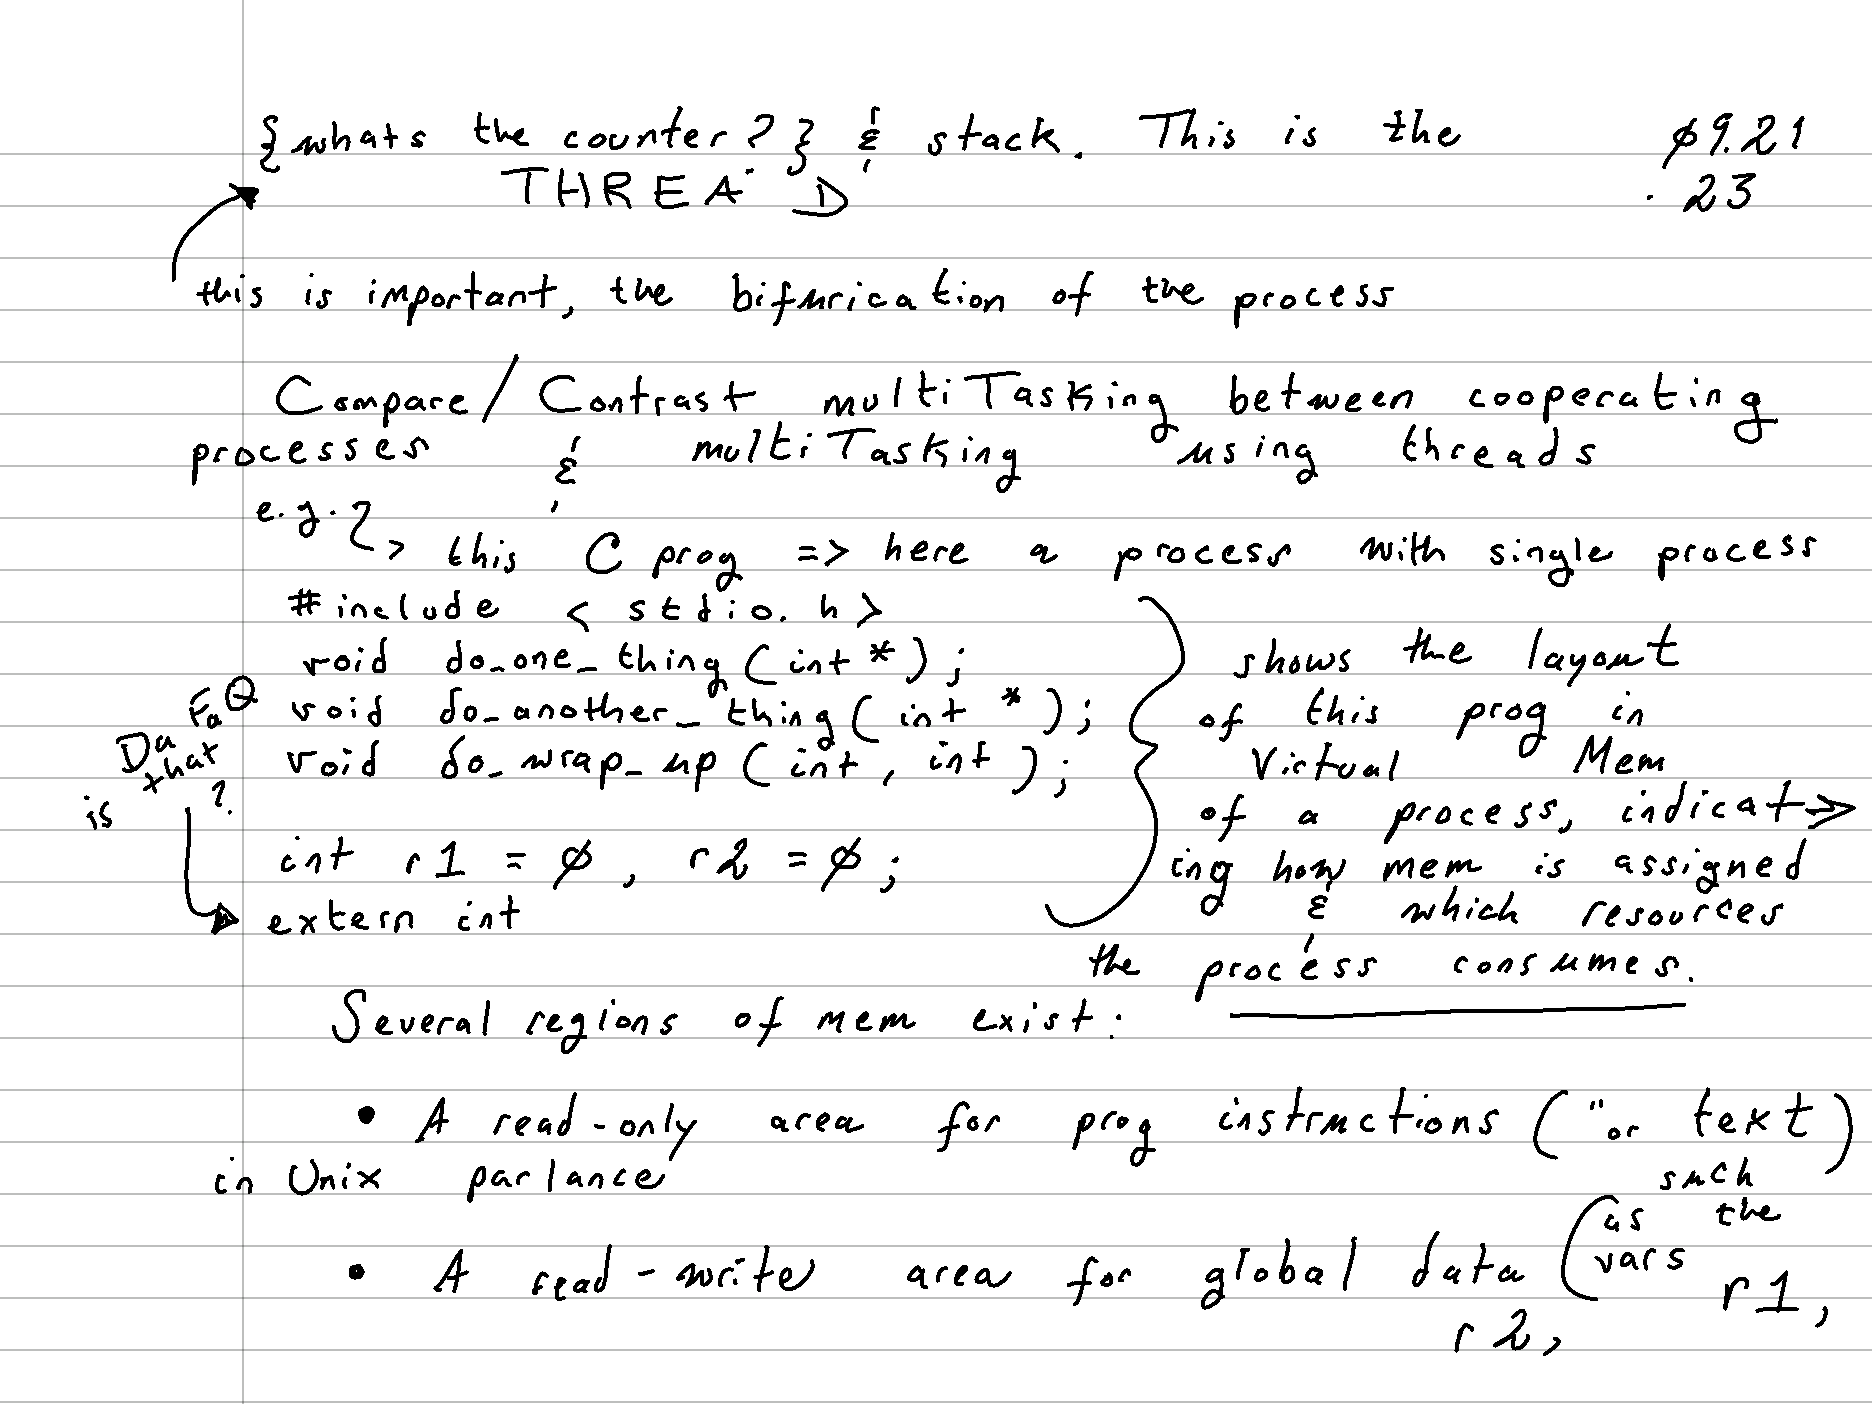 {whats the counter?} & stack. This is the ø9.21
THREAD .23
this is important, the bifurication of the process
Compare/Contrast multiTasking between cooperating
processes & multiTasking using threads
e.g. > this C prog => here a process with single process
#include < stdio.h>
void do_one_thing(int *);
void do_another_thing(int *);
void do_wrap_up(int, int);
Da FaQ
is that ?
int r1 = ø, r2 = ø;
extern int
shows the layout
of this prog in
Virtual Mem
of a process, indicat
ing how mem is assigned
& which resources
the process consumes.
Several regions of mem exist:
• A read-only area for prog instructions ("or text)
in Unix parlance
• A read-write area for global data (such
as the
vars r1,
r2,